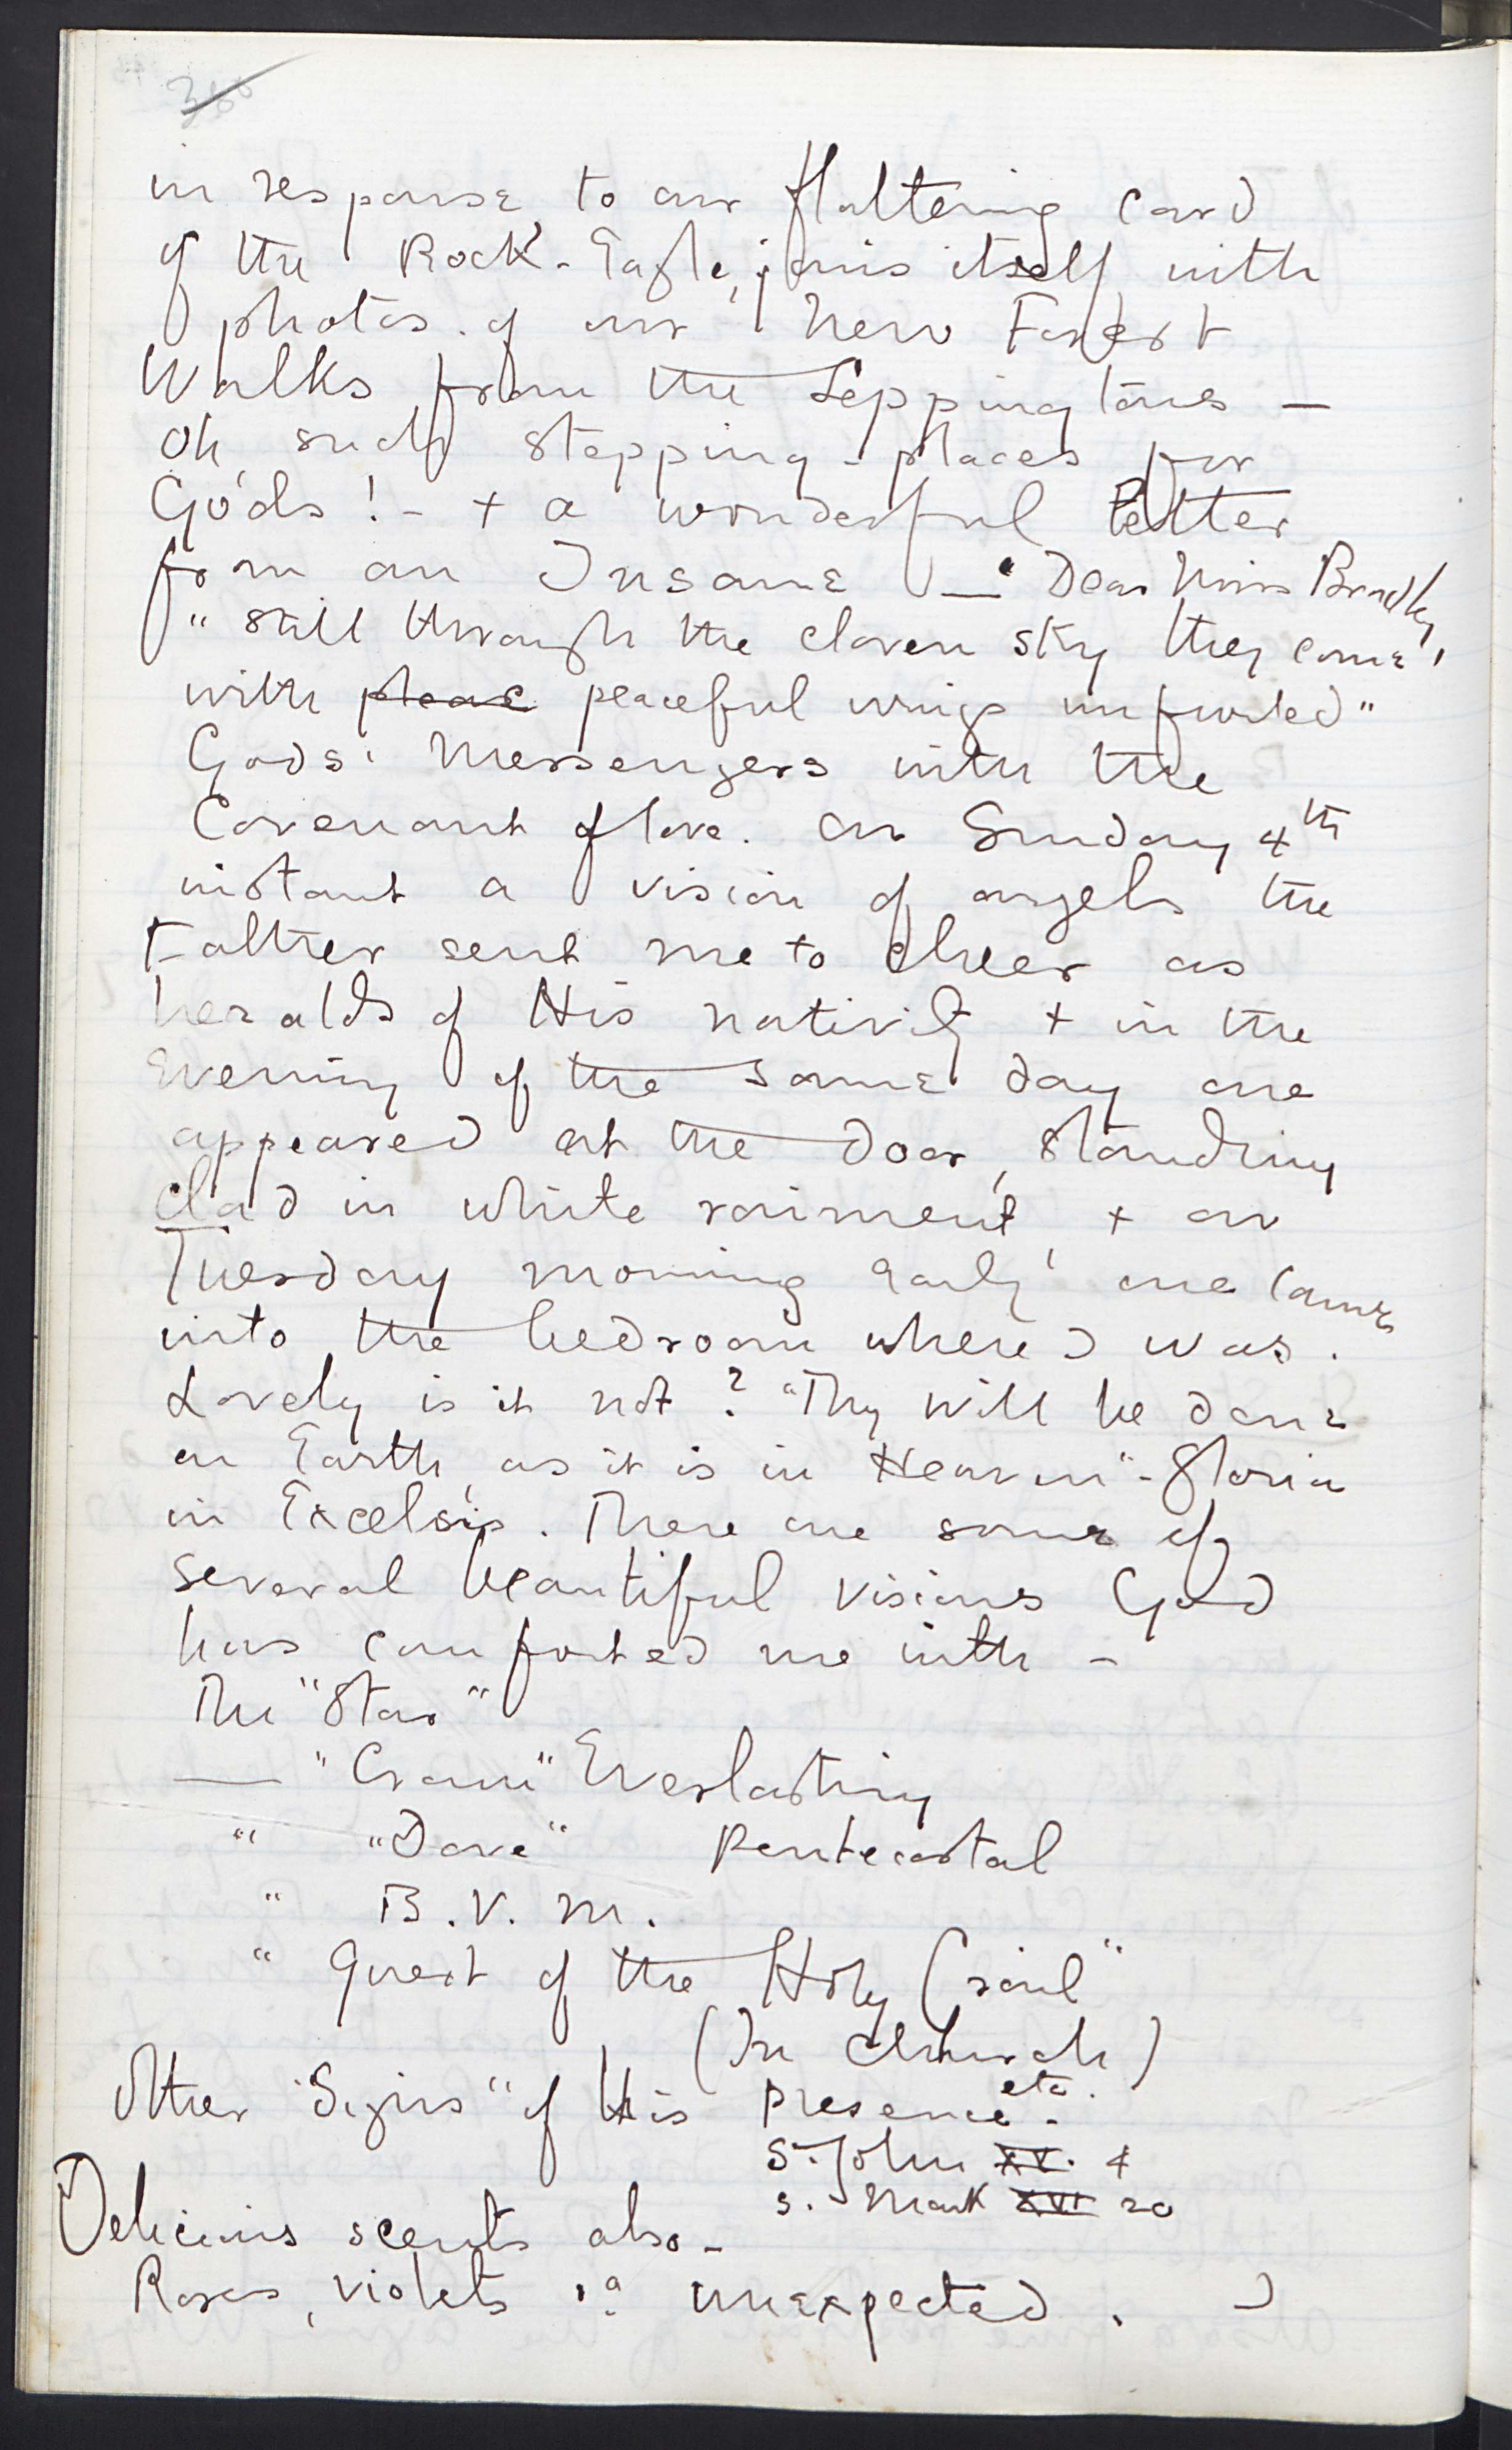 in response to our flattering card
of the Rock-Eagle, joins itself with
photos. of our New Forest
Walks from the Leppingtons —
Oh such stepping-places for
Gods! - + a wonderful letter
from an Insane — "Dear Miss Bradley,
"Still through the cloven sky they come'
with pleac peaceful wings unfurled"
Gods' Messengers with the
Covenant of love. On Sunday 4th
instant a vision of angels the
Father sent me to cheer as
heralds of His nativity + in the
Evening of the same day one
appeared at the door, standing
clad in white raiment, + on
Tuesday morning early one came
into the bedroom where I was.
Lovely is it not? "Thy Will be done
on Earth, as it is in Heaven"- Gloria
in Excelsis. There are some of
several beautiful visions God
has comforted me with -
The "Star"
— "Crown" Everlasting
" "Dove" Pentecostal
" B.V.M.
" Quest of the Holy Grail"
(In Church)
Other "Signs" of His Presence etc. -
S. John XV. 4
S. Mark XVI 20
Delicious scents also -
Roses, violets unexpected.